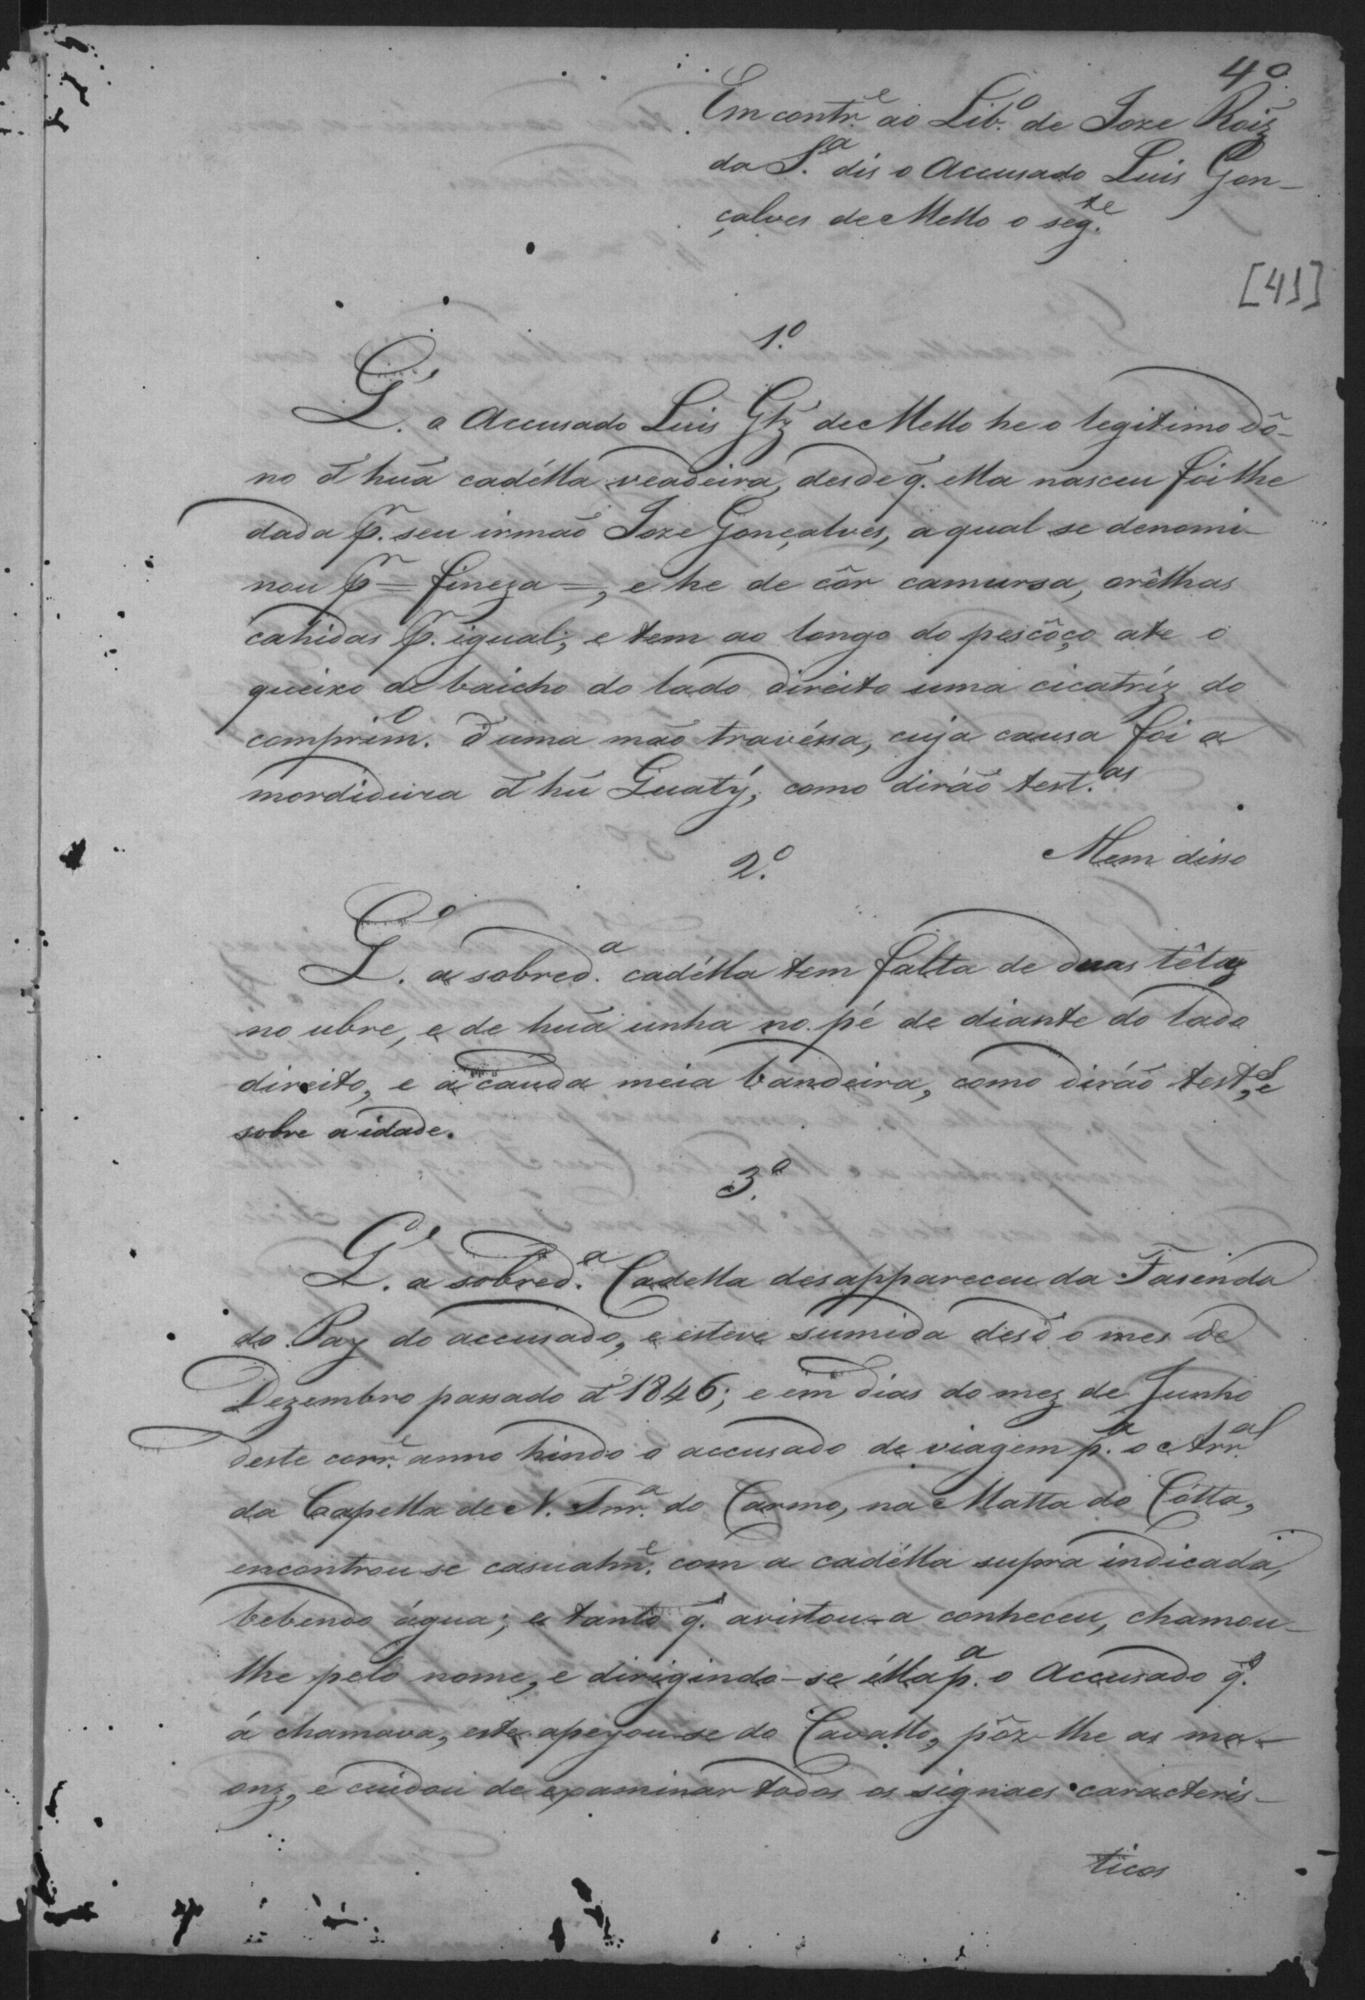 40
Em contr.e ao Lib.o de Joze Roiz
da S.a dis o Accusado Luis Gon-
çalves de Mello o seg.te
[41]
1.o
P. o Accusado Luis Glz de Mello he o legitimo dô-
no d' huã cadélla veadeira, desde q. ella nasceu foi lhe
dada p.r seu irmão Joze Gonçalves, a qual se denomi-
nou p.r = fineza =, e he de côr camursa, orêlhas
cahidas p.r igual; e tem ao longo do pescôço ate o
queixo de baicho do lado direito uma cicatríz do
comprim.o d'uma mão travéssa, cuja causa foi a
mordideira d' hũ Guatý; como dirão test.as
Alem disso
2.o
P. a sobred.a cadélla tem falta de duas têtaz
no ubre, e de huã unha no pé de diante do lado
direito, e a cauda meia bandeira, como dirão test.s, e
sobre a idade.
3.o
P. a sobred.a Cadella desappareceu da Fasenda
do Pay do accusado, e esteve sumida desd' o mes de
Dezembro passado d' 1846; e em dias do mez de Junho
deste corr.e anno hindo o accusado de viagem p.a o Arr.al
da Capella de N. Snr.a do Carmo, na Matta do Cótta,
encontrou se casualm.e com a cadélla supra indicada,
bebendo água; e tanto q. avistou-a conheceu, chamou-
lhe pelo nome, e dirigindo-se élla p.a o Accusado q.
á chamava, este apeyou-se do Cavallo, pôz-lhe as ma-
onz, e cuidou de expaminar todos os signaes caracteris-
ticos